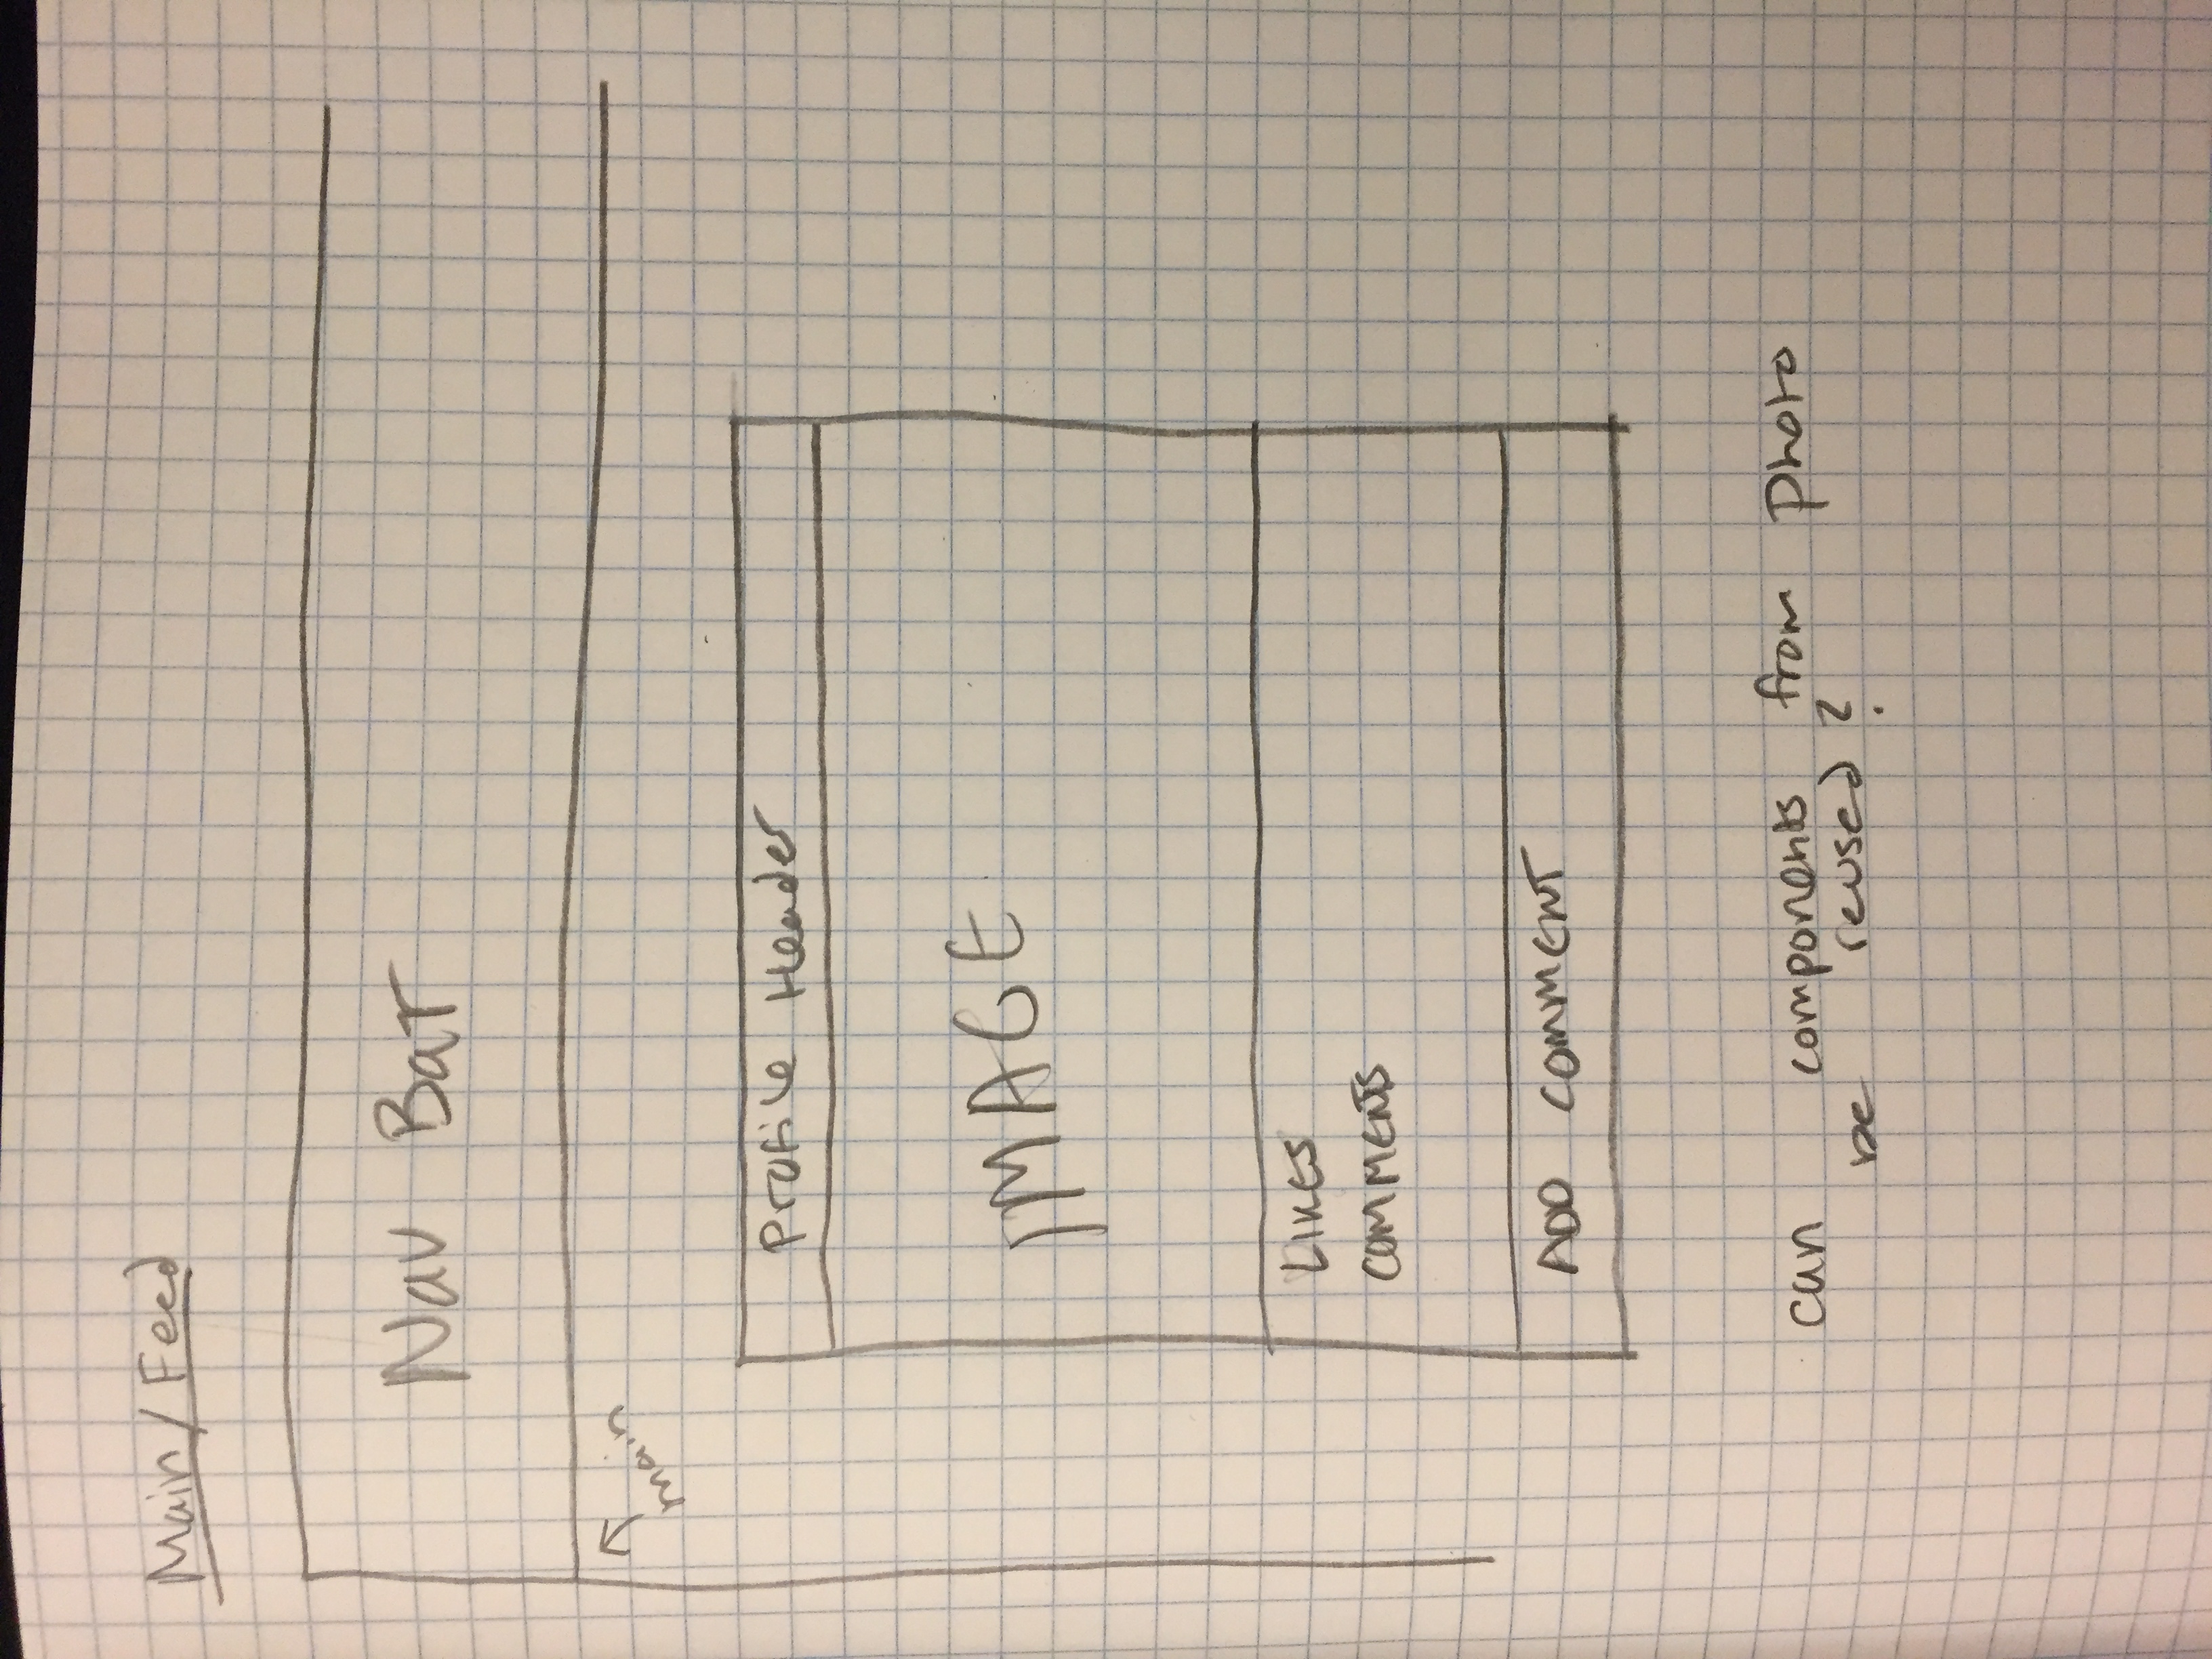 Main/Feed
Nav Bar
main
Profile Header
IMAGE
LIKES
COMMENTS
ADD COMMENT
can components from Photo
be reused?